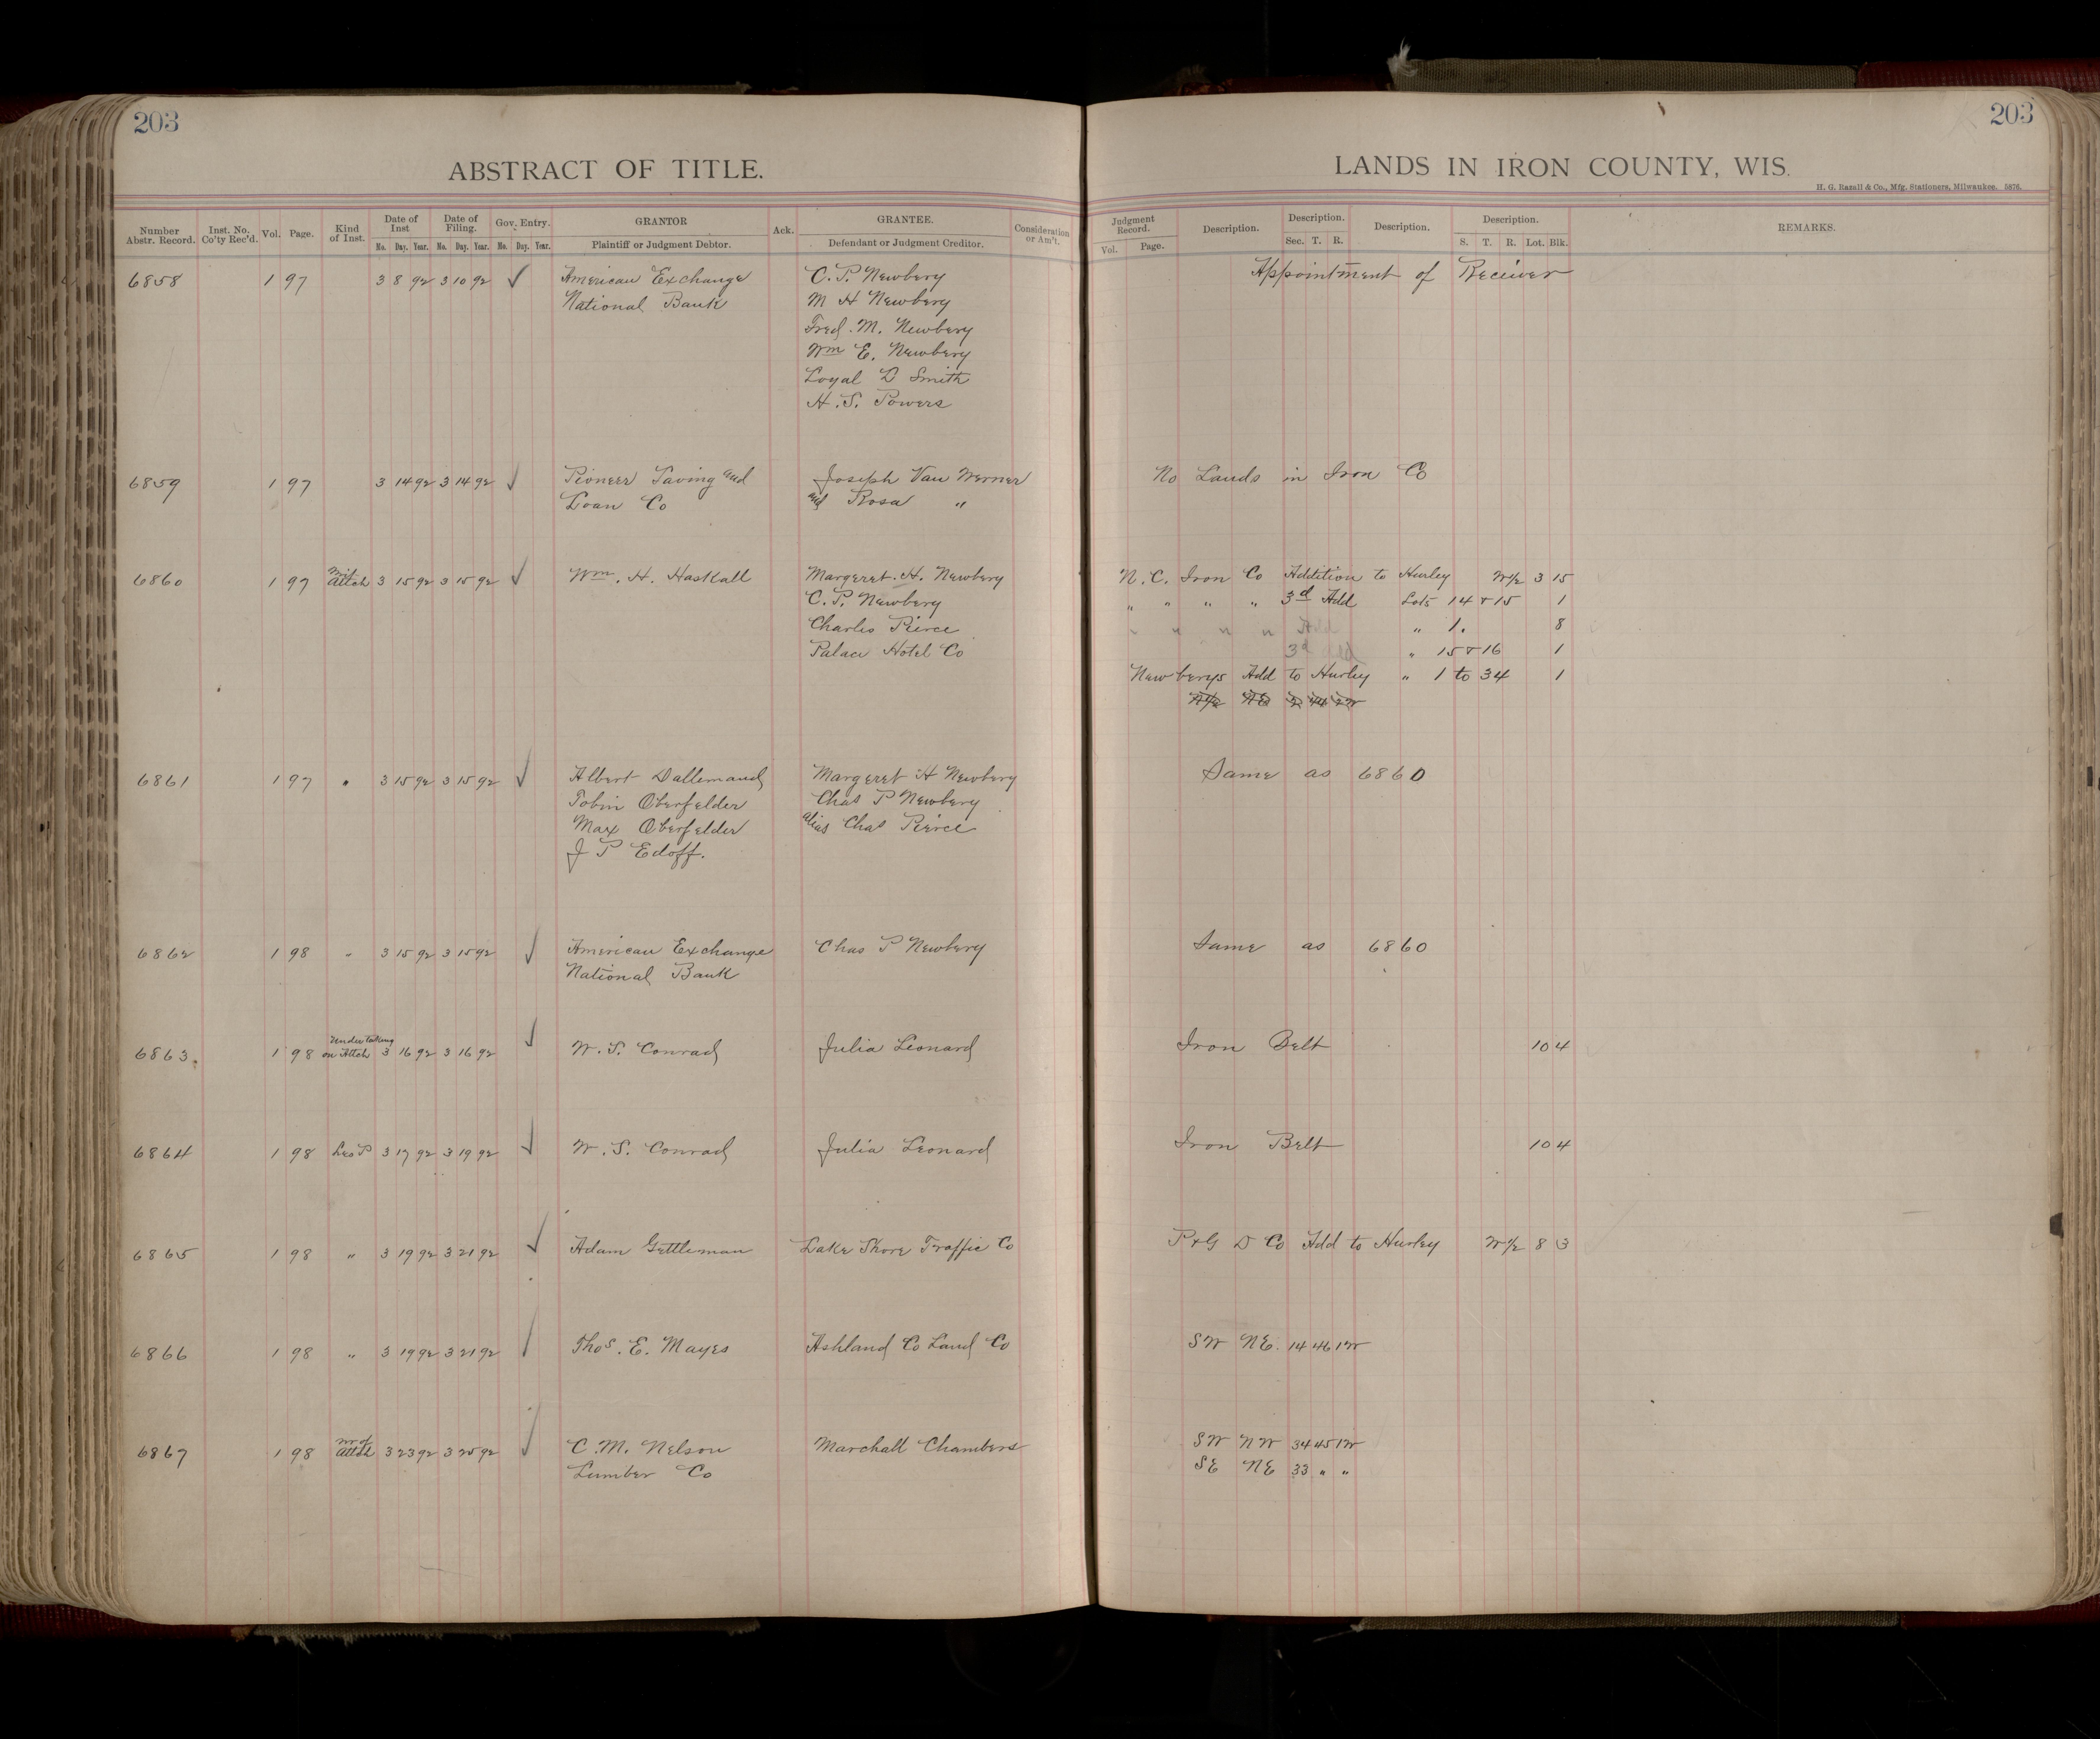 203
203
ABSTRACT OF TITLE.
LANDS IN IRON COUNTY, WIS.
H. G. Razall & Co., Mfg. Stationers, Milwaukee. 5876.
Number Abstr. Record. Inst. No. Co'ty Rec'd. Vol. Page. Kind of Inst. Date of Inst Date of Filing. Gov. Entry. GRANTOR Ack. GRANTEE. Consideration or Am't. Judgment Record. Description. Description. Description. Description. REMARKS.
No. Day. Year. No. Day. Year. No. Day. Year. Plaintiff or Judgment Debtor. Defendant or Judgment Creditor. Vol. Page. Sec. T. R. S. T. R. Lot. Blk.
6858 1 97 3 8 92 3 10 92 ✓ American Exchange C. P. Newbery Appointment of Receiver
National Bank M H Newbery
Fred. M. Newbery
Wm E. Newbery
Loyal D Smith
H. S. Powers
6859 1 97 3 14 92 3 14 92 ✓ Pioneer Saving and Joseph Van Werner No Lands in Iron Co
Loan Co and Rosa "
6860 1 97 Writ Attch 3 15 92 3 15 92 ✓ Wm. H. Haskall Margeret. H. Newbery N. C. Iron Co Addition to Hurley W½ 3 15
C. P. Newbery " " " " 3d Add Lots 14 & 15 1
Charles Pierce " " " " Add " 1. 8
Palace Hotel Co 3d Add " 15 & 16 1
Newberys Add to Hurley " 1 to 34 1
6861 1 97 " 3 15 92 3 15 92 ✓ Albert Dallemand Margeret H Newbery Same as 6860
Tobin Oberfelder Chas P Newbery
Max Oberfelder alias Chas Pierce
J P Edoff.
6862 1 98 " 3 15 92 3 15 92 ✓ American Exchange Chas P Newbery Same as 6860
National Bank
6863. 1 98 Undertaking on Attch 3 16 92 3 16 92 ✓ W. S. Conrad Julia Leonard Iron Belt 10 4
6864 1 98 Les P 3 17 92 3 19 92 ✓ W. S. Conrad Julia Leonard Iron Belt 10 4
6865 1 98 " 3 19 92 3 21 92 ✓ Adam Gettleman Lake Shore Traffic Co P & G D Co Add to Hurley W½ 8 3
6866 1 98 " 3 19 92 3 21 92 ✓ Thos. E. Mayes Ashland Co Land Co SW NE. 14 46 1W
6867 1 98 Wr of Attch 3 23 92 3 25 92 ✓ C. M. Nelson Marchall Chambers SW NW 34 45 1W
Lumber Co SE NE 33 " "